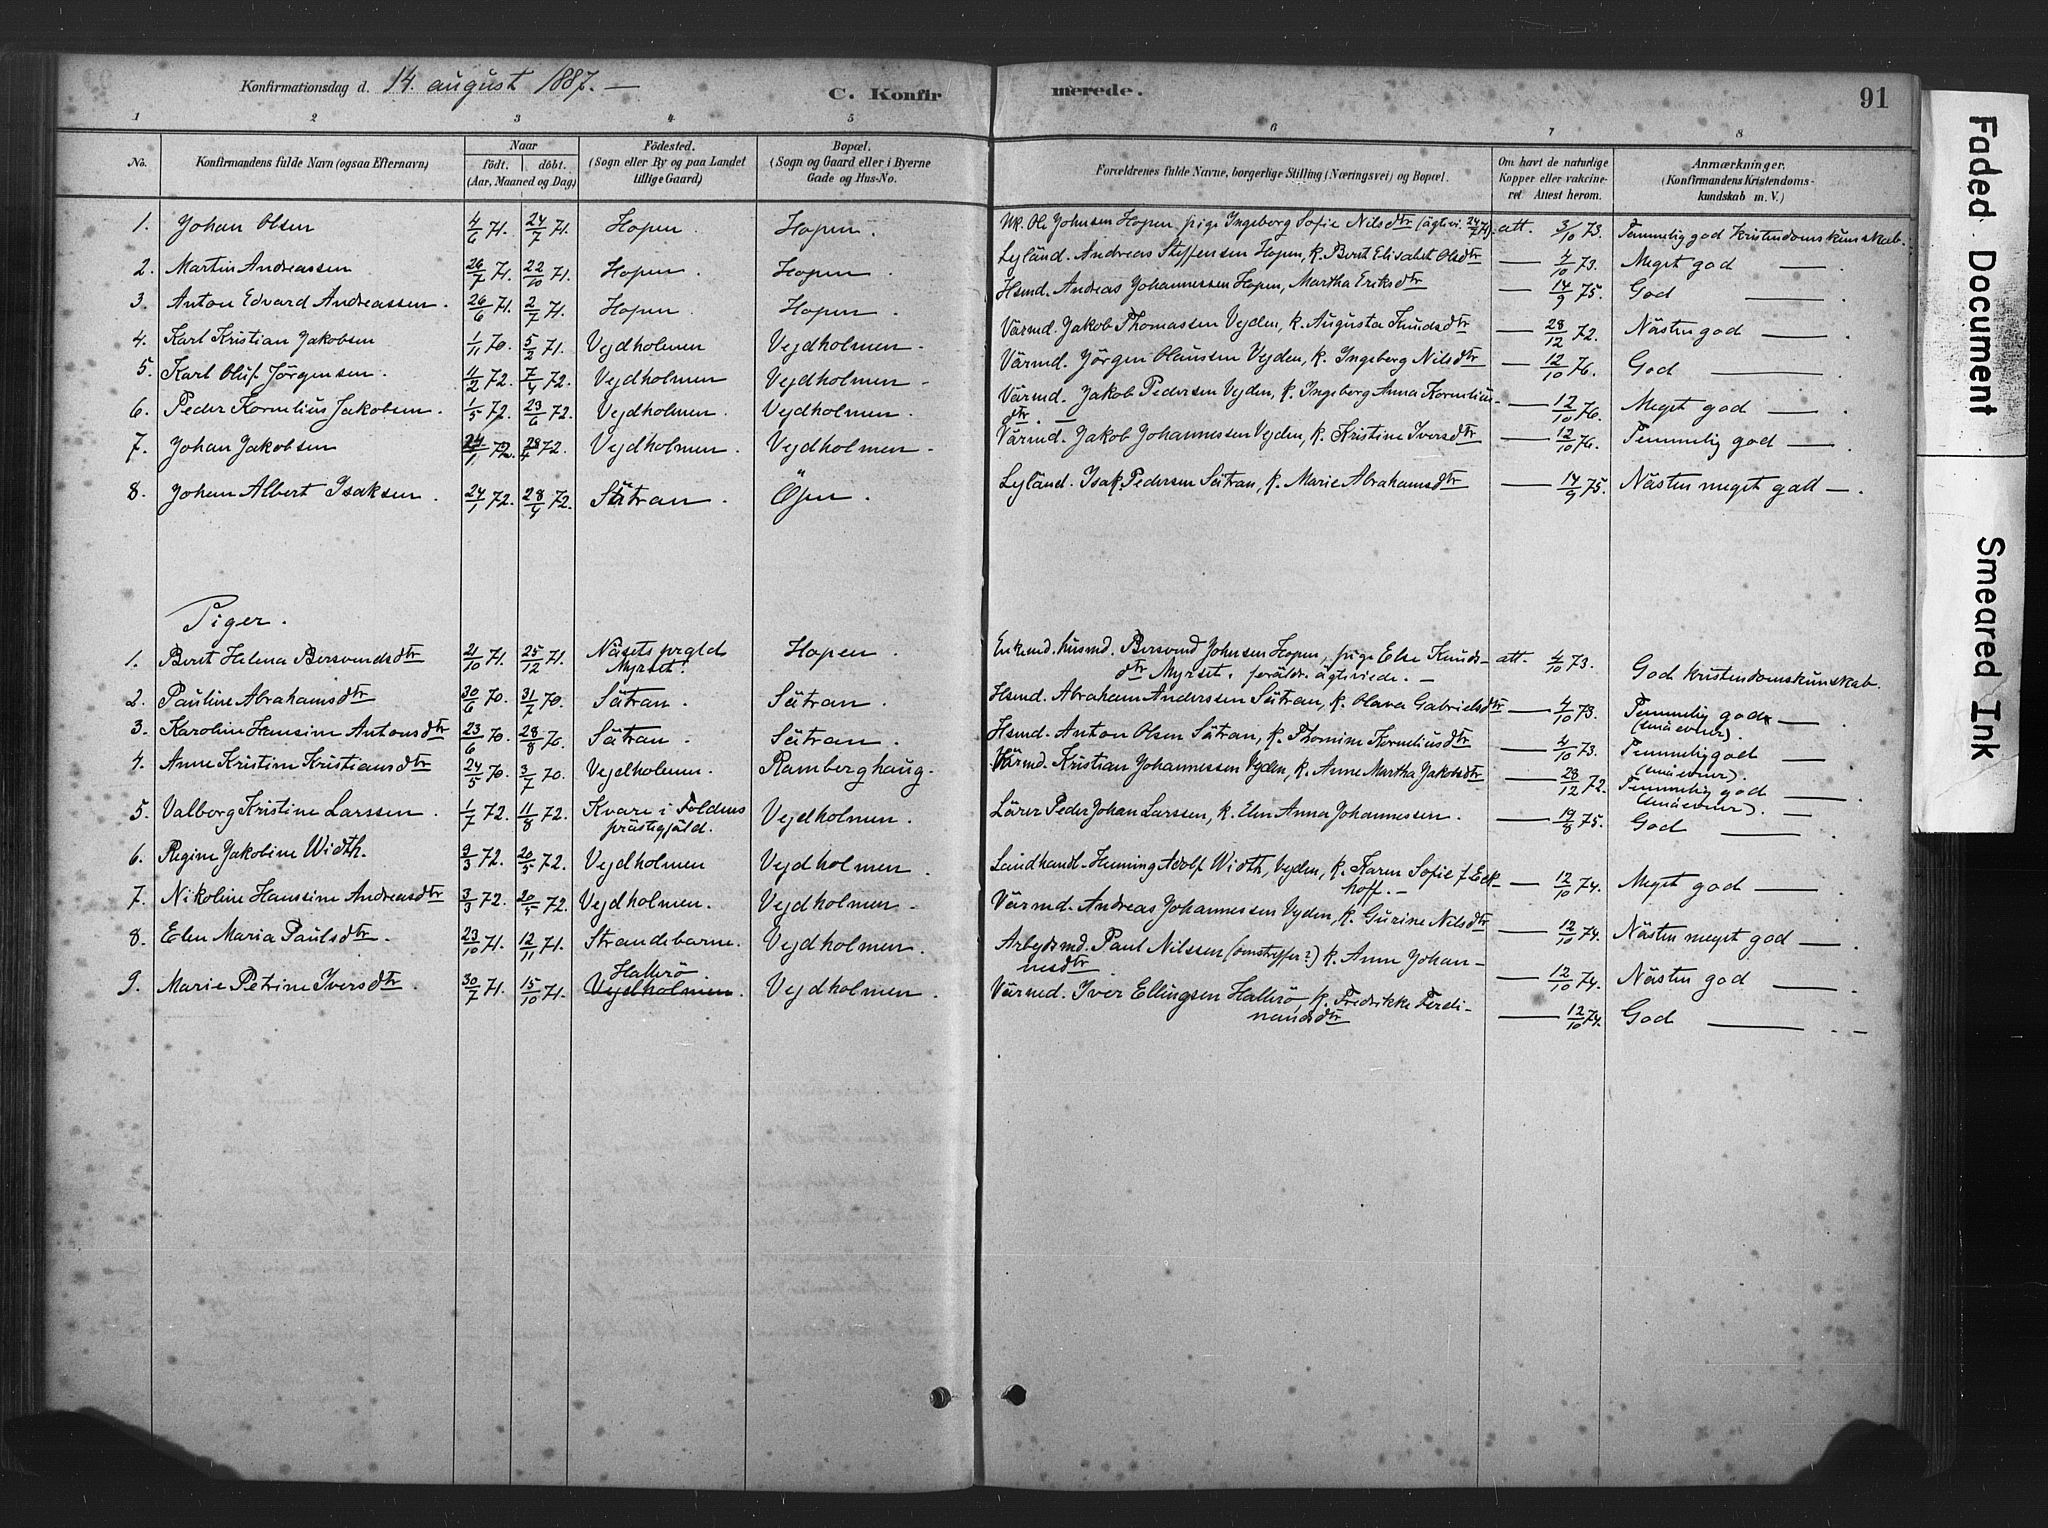 Konfirmationsdag d. 14. august 1887. —
C. Konfir merede.
91
1 2 3 4 5 6 7 8
No.
Konfirmandens fulde Navn (ogsaa Efternavn)
Naar
födt. döbt.
(Aar, Maaned og Dag)
Födested.
(Sogn eller By og paa Landet
tillige Gaard)
Bopæl.
(Sogn og Gaard eller i Byerne
Gade og Hus-No.
Forældrenes fulde Navne, borgerlige Stilling (Næringsvei) og Bopæl.
Om havt de naturlige
Kopper eller vakcine-
ret Attest herom.
Anmærkninger.
(Konfirmandens Kristendoms-
kundskab m. V.)
1. Johan Olsen 4/6 71. 24/7 71. Hopen. Hopen. Uk. Ole Johnsen Hopen, pige Ingeborg Sofie Nilsdtr (ägtvi. 24/7 71). att. 3/10 73. Temmelig god Kristendomskunskab.
2. Martin Andreassen 26/7 71. 22/10 71. Hopen. Hopen. Lejländ. Andreas Steffensen Hopen, k. Berit Elisabet Olsdtr — 4/10 73. Meget god —.
3. Anton Edvard Andreassen. 26/6 71. 2/7 71. Hopen. Hopen. Hsmd. Andreas Johannessen Hopen, Martha Eriksdtr — 14/9 75. God —.
4. Karl Kristian Jakobsen 1/11 70. 5/2 71. Vejdholmen Vejdholmen. Värmd. Jakob Thomassen Vejden, k. Augusta Knudsdtr — 28/12 72. Nästen god —.
5. Karl Oluf Jörgensen. 11/2 72. 7/4 72. Vejdholmen Vejdholmen. Värmd. Jörgen Olaussen Vejden, k. Ingeborg Nilsdtr — 12/10 76. God —.
6. Peder Kornelius Jakobsen. 1/5 72. 23/6 72. Vejdholmen. Vejdholmen. Värmd. Jakob Pedersen Vejden, k. Ingeborg Anna Kornelius-
dtr. — — 12/10 76. Meget god —.
7. Johan Jakobsen 24/1 72. 28/4 72. Vejdholmen. Vejdholmen. Värmd. Jakob Johannessen Vejden, k. Kristine Iversdtr — 12/10 76. Temmelig god —
8. Johan Albert Isaksen. 24/1 72. 28/4 72. Sätran. Öjen. Lejländ. Isak Pedersen Sätran, k. Marie Abrahamsdtr — 14/9 75. Nästen meget godt —.
Piger.
1. Berit Helena Bersvendsdtr 21/10 71. 25/12 71. Näsets prgld
Myrset. Hopen. Enkemd. husmd. Bersvend Johnsen Hopen, pige Else Knuds-
dtr Myrset. foräldr. ägteviede. — att. 4/10 73. God Kristendomskunskab.
2. Pauline Abrahamsdtr 30/6 70. 31/7 70. Sätran. Sätran. Hsmd. Abraham Anderssen Sätran, k. Olava Gabrielsdtr — 4/10 73. Temmelig god —.
(små evner).
3. Karoline Hansine Antonsdtr 23/6 70. 28/8 70. Sätran. Sätran. Hsmd. Anton Olsen Sätran, k. Thomine Korneliusdtr — 4/10 73. Temmelig god —
(små evner).
4. Anne Kristine Kristiansdtr 24/5 70. 3/7 70. Vejdholmen. Ramberghaug. Värmd. Kristian Johannessen Vejden, k. Anne Martha Jakobsdtr — 28/12 72. Temmelig god —.
(små evner). —
5. Valborg Kristine Larssen. 1/7 72. 11/8 72. Kvare i Foldens
prästegjäld. Vejdholmen. Lärer Peder Johan Larssen, k. Elen Anna Johannessen. — 19/8 75. God —.
6. Regine Jakobine Width. 9/3 72. 20/5 72. Vejdholmen Vejdholmen. Landhandl. Henning Adolf Width, Vejden, k. Karen Sofie f. Eck-
hoff. — — 12/10 74. Meget god —.
7. Nikoline Hanssine Andreasdtr 3/3 72. 20/5 72. Vejdholmen. Vejdholmen. Värmd. Andreas Johannessen Vejden, k. Gurine Nilsdtr — 12/10 74. Nästen meget god —.
8. Elen Maria Paulsdtr. 23/10 71. 12/11 71. Strandebarne. Vejdholmen. Arbejdsmd. Paul Nilssen (omstreffer?) k. Anne Johan-
nesdtr — 12/10 74. Nästen god —.
9. Marie Petrine Iversdtr. 30/7 71. 15/10 71. Hallerö.
Vejdholmen. Vejdholmen. Värmd. Iver Ellingsen Hallerö, k. Fredrikke Ferdi-
nandsdtr — 12/10 74. God —. —
Faded Document
Smeared Ink